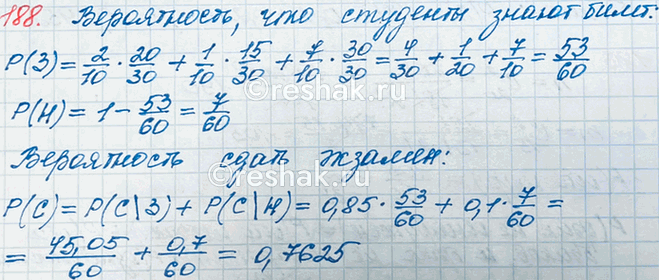 188. Вероятность, что студенты знают билет:
P(З) = 2/10 · 20/30 + 1/10 · 15/30 + 7/10 · 30/30 = 4/30 + 1/20 + 7/10 = 53/60
P(Н) = 1 - 53/60 = 7/60
Вероятность сдать экзамен:
P(C) = P(C\З) + P(C\Н) = 0,85 · 53/60 + 0,1 · 7/60 =
= 45,05/60 + 0,7/60 = 0,7625
©reshak.ru